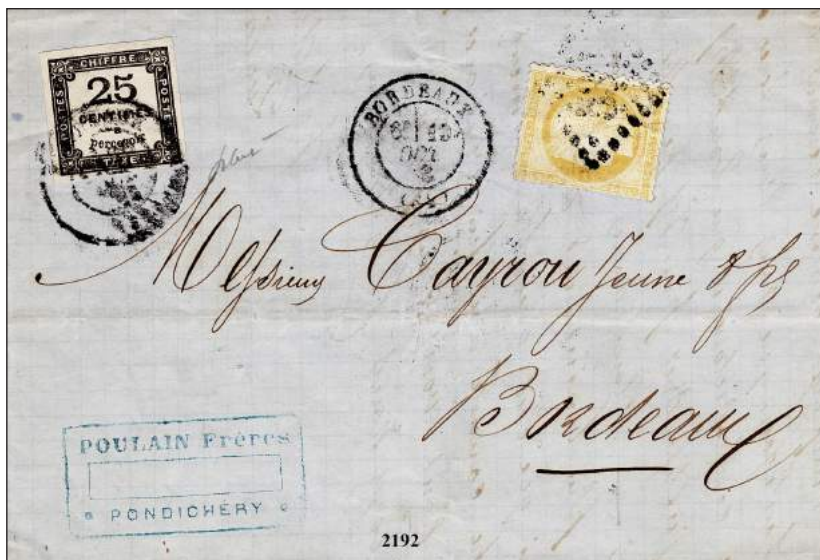 CHIFFRE
POSTES
25
CENTIMES
à
percevoir
POSTES
TAXE
BORDEAUX
13
OCT
Messieurs Cayrou Jeune & fils
Bordeaux
POULAIN Frères
PONDICHÉRY
2192